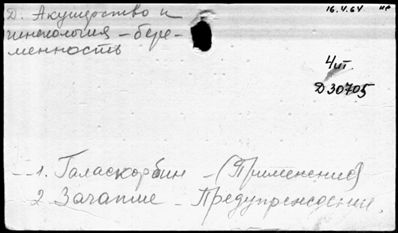 Д. Акушерство и 16.4.64 нг
гинекология – бере-
менность
4ит.
Д30705
1. Галаскорбин – (Применение)
2 Зачатие – Предупреждение.